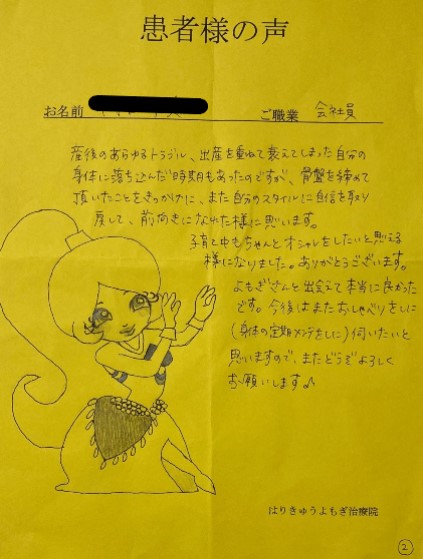 患者様の声
お名前
ご職業 会社員
産後のあらゆるトラブル、出産を重ねて衰えてしまった自分の
身体に落ち込んだ時期もあったのですが、骨盤を締めて
頂いたことをきっかけに、また自分のスタイルに自信を取り
戻して、前向きになれた様に思います。
子育て中もちゃんとオシャレをしたいと思える
様になりました。ありがとうございます。
よもぎさんと出会えて本当に良かった
です。今後はまたおしゃべりをしに
(身体の定期メンテをしに)伺いたいと
思いますので、またどうぞよろしく
お願いします♪
はりきゅうよもぎ治療院
②